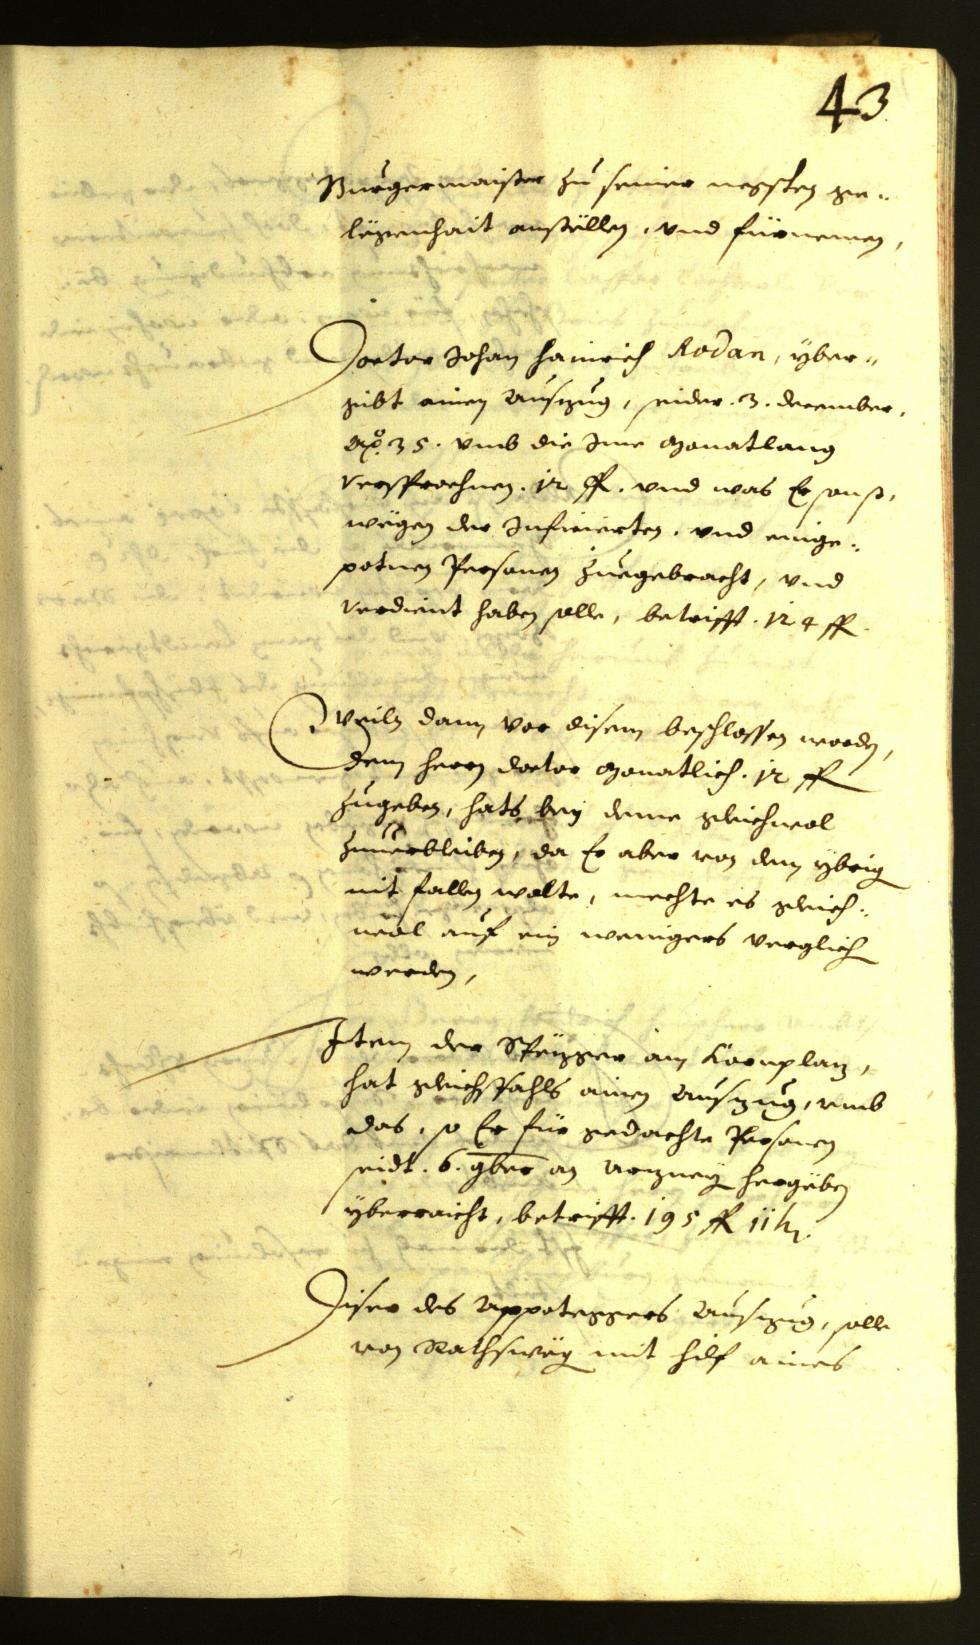 43
Burgermaister zu seiner negsten ge¬
legenhait anstellen, vnd fürnemen,
Doctor Johan Hainrich Rodan, yber¬
gibt ainen Auszug, seider .3. december,
Aõ. 35. vmb die Jme Monatlang
versprochnen .12 fl. vnd was Er sonst,
wegen der Inficierten, vnd einge¬
potnen Personen zuegebracht, vnd
verdient haben solle, betrifft .124 fl.
Weiln dann vor disem beschlossen worden,
dem herrn doctor Monatlich .12 fl
zugeben, hats bey deme gleichwol
zuuerbleiben, da Er aber von dem ybrig
nit fallen wolte, mechte es gleich¬
wol auf ein wenigers verglich
werden,
Item der Apotegger am Kornplaz,
hat gleichsfahls ainen Auszug, vmb
das, so Er für gedachte Personen
seidt .6. 9ber an Arzney hergeben
yberraicht, betrifft .195 fl 11 kr.
Diser des Appoteggers Auszug, solle
von Rathsweg mit hilf aines